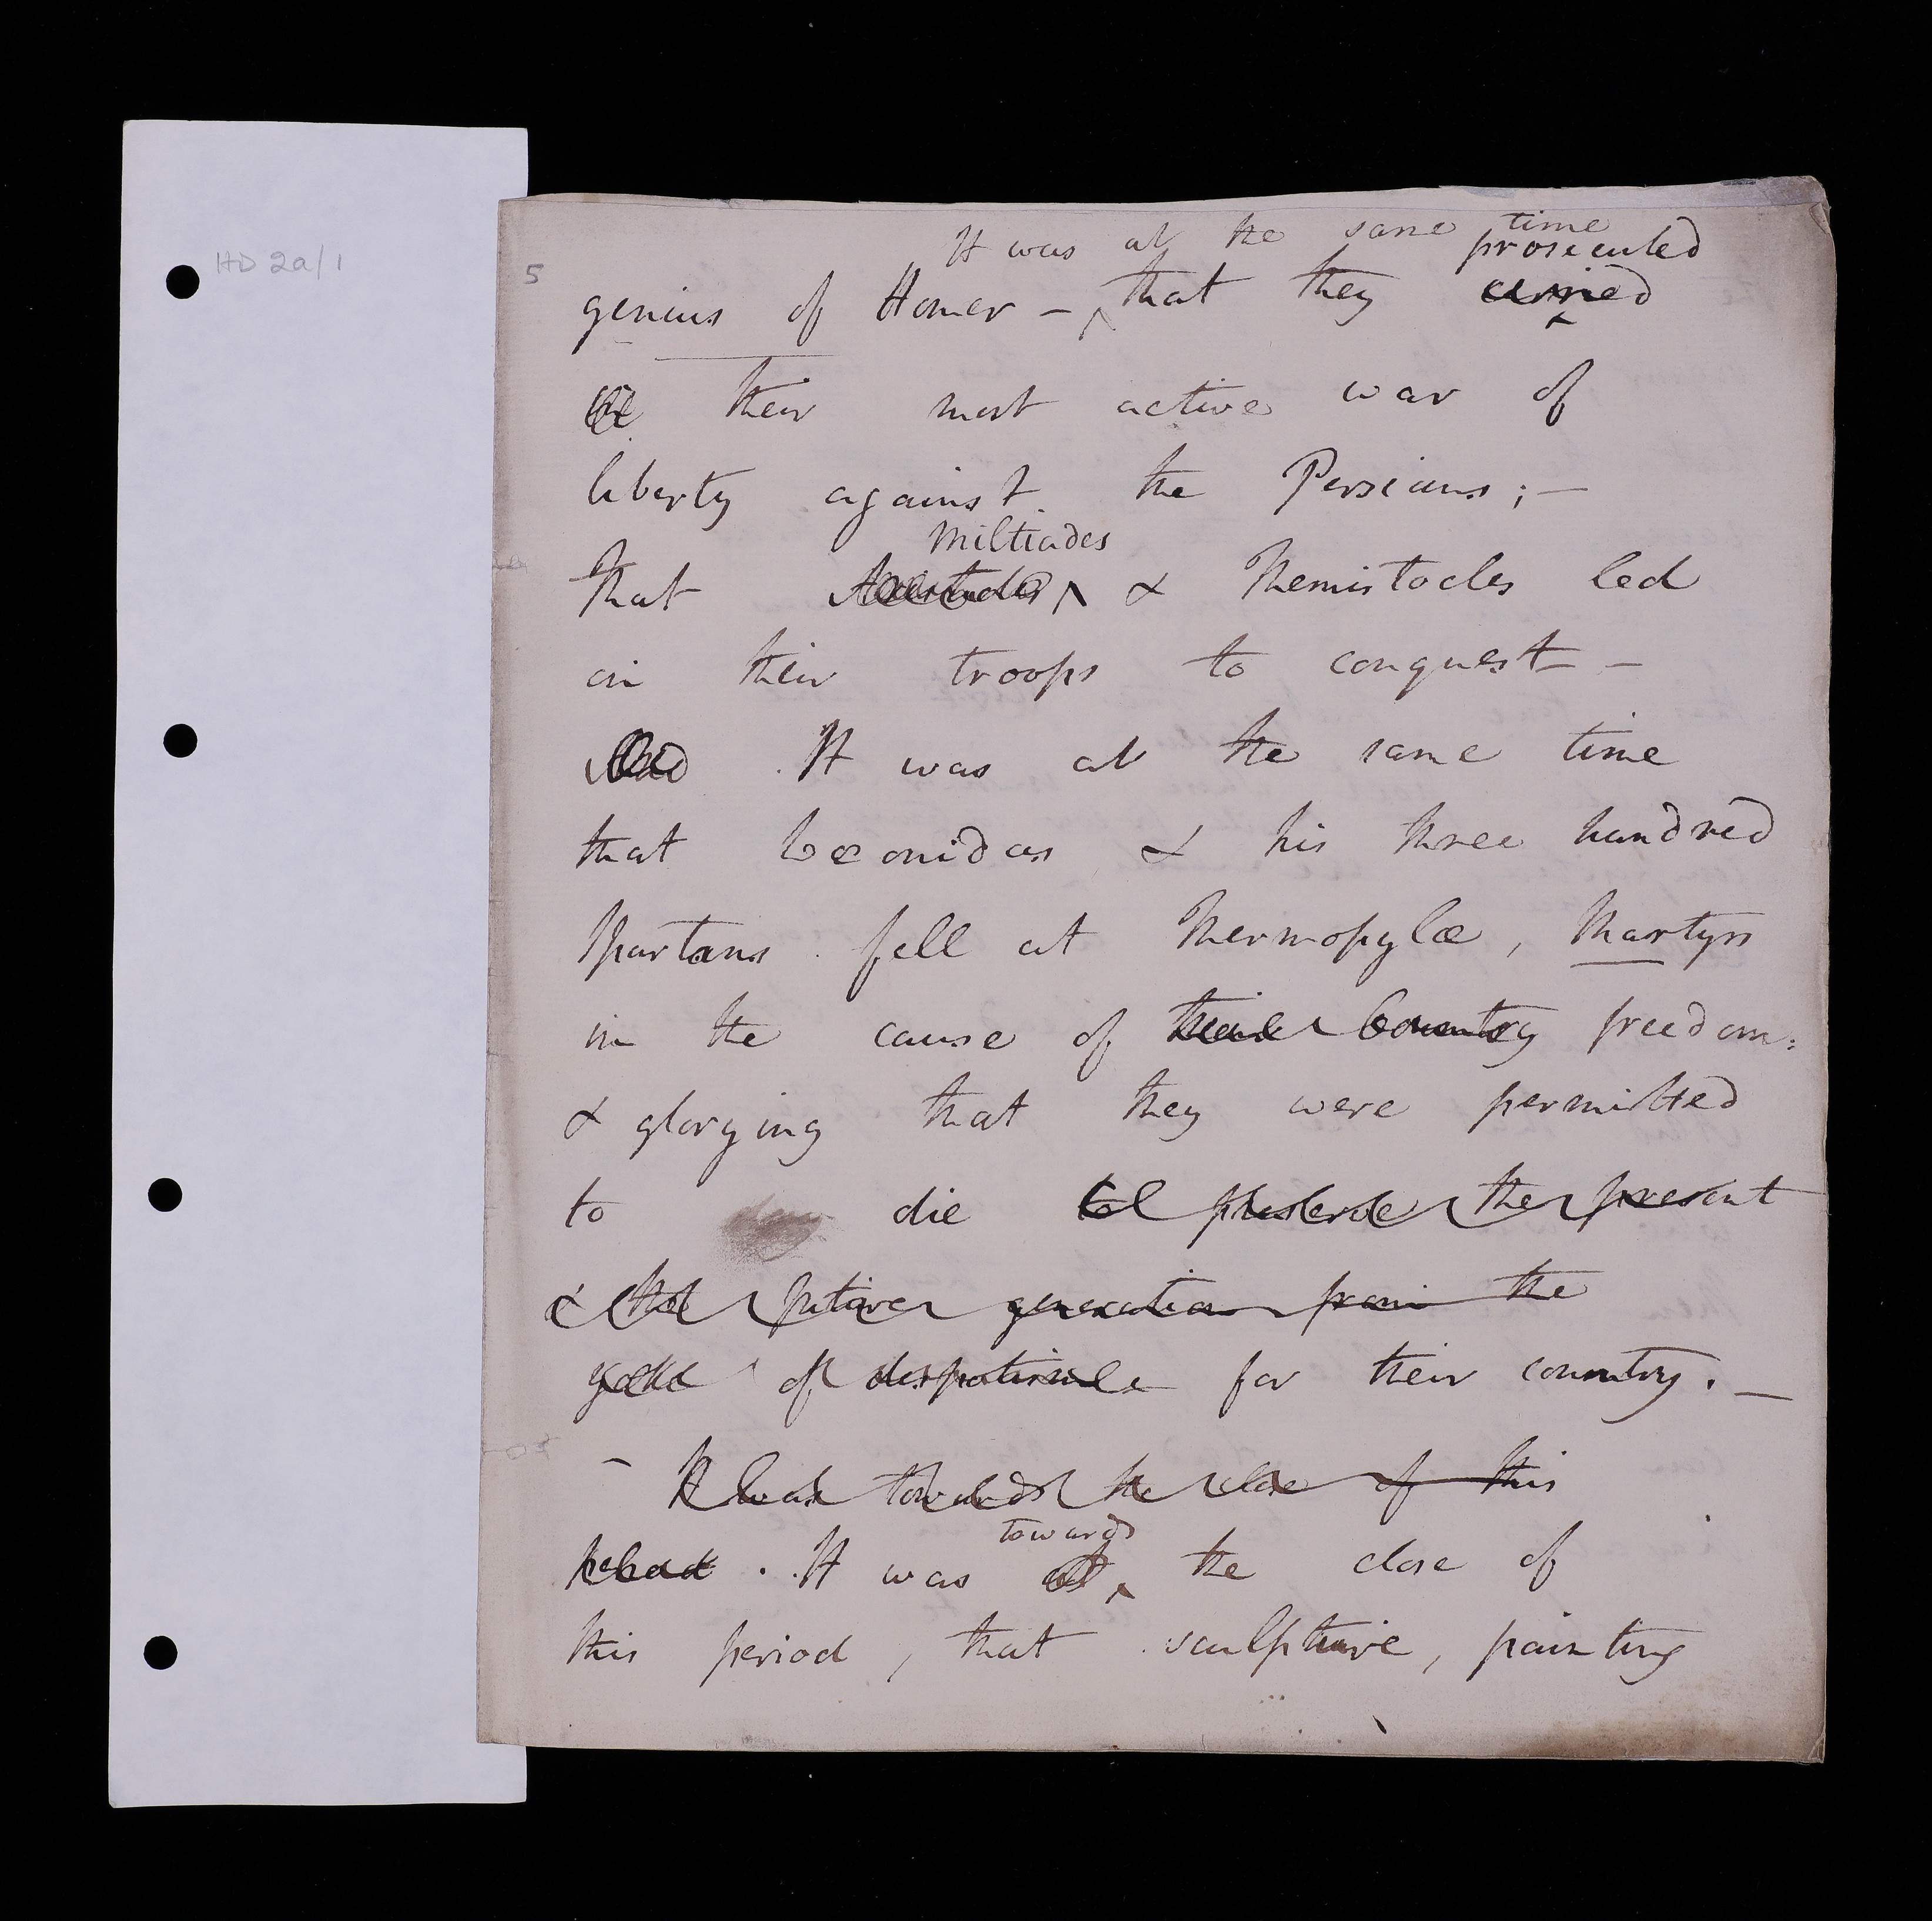 HD 2a/1
5
It was at the same time
prosecuted
genius of Homer – that they carried
their most active war of
liberty against the Persians; –
Miltiades
that & Themistocles led
on their troops to conquest –
And It was at the same time
that Leonidas & his three hundred
Spartans fell at Thermopylæ, Martyrs
in the cause of their Country freedom:
& glorying that they were permitted
to die to preserve the present
& the future generation from the
yoke of despotism for their country. –
– It was towards the close of this
period. It was at the close of
towards
this period, that sculpture, painting